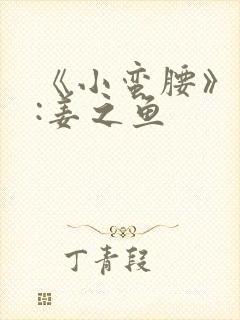 《小蛮腰》
:姜之鱼
丁青段